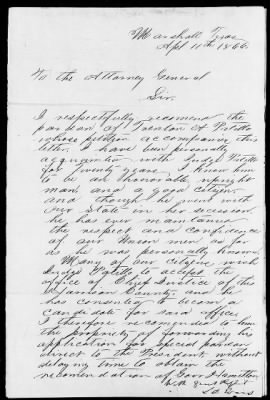 Marshall Texas
Apl 11th 1866.
To the Attorney General
Sir.
I respectfully recommend the
pardon of Trenton A Patillo
whose petition accompanies this
letter. I have been personally
acquainted with Judge Patillo
for twenty years. I know him
to be an honorable upright
man, and a good citizen.
and though he went with
our State in her secession
he has ever maintained
the respect and confidence
of our Union men as far
as he was personally known.
Many of our citizens wish
Judge Patillo to accept the
office of Chief Justice of this
Harrison County. and he
has consented to become a
candidate for said office
I therefore recommend to him
the propriety of forwarding his
application for special pardon
direct to the President, without
delay time to obtain the
recommendation of Gov Hamilton